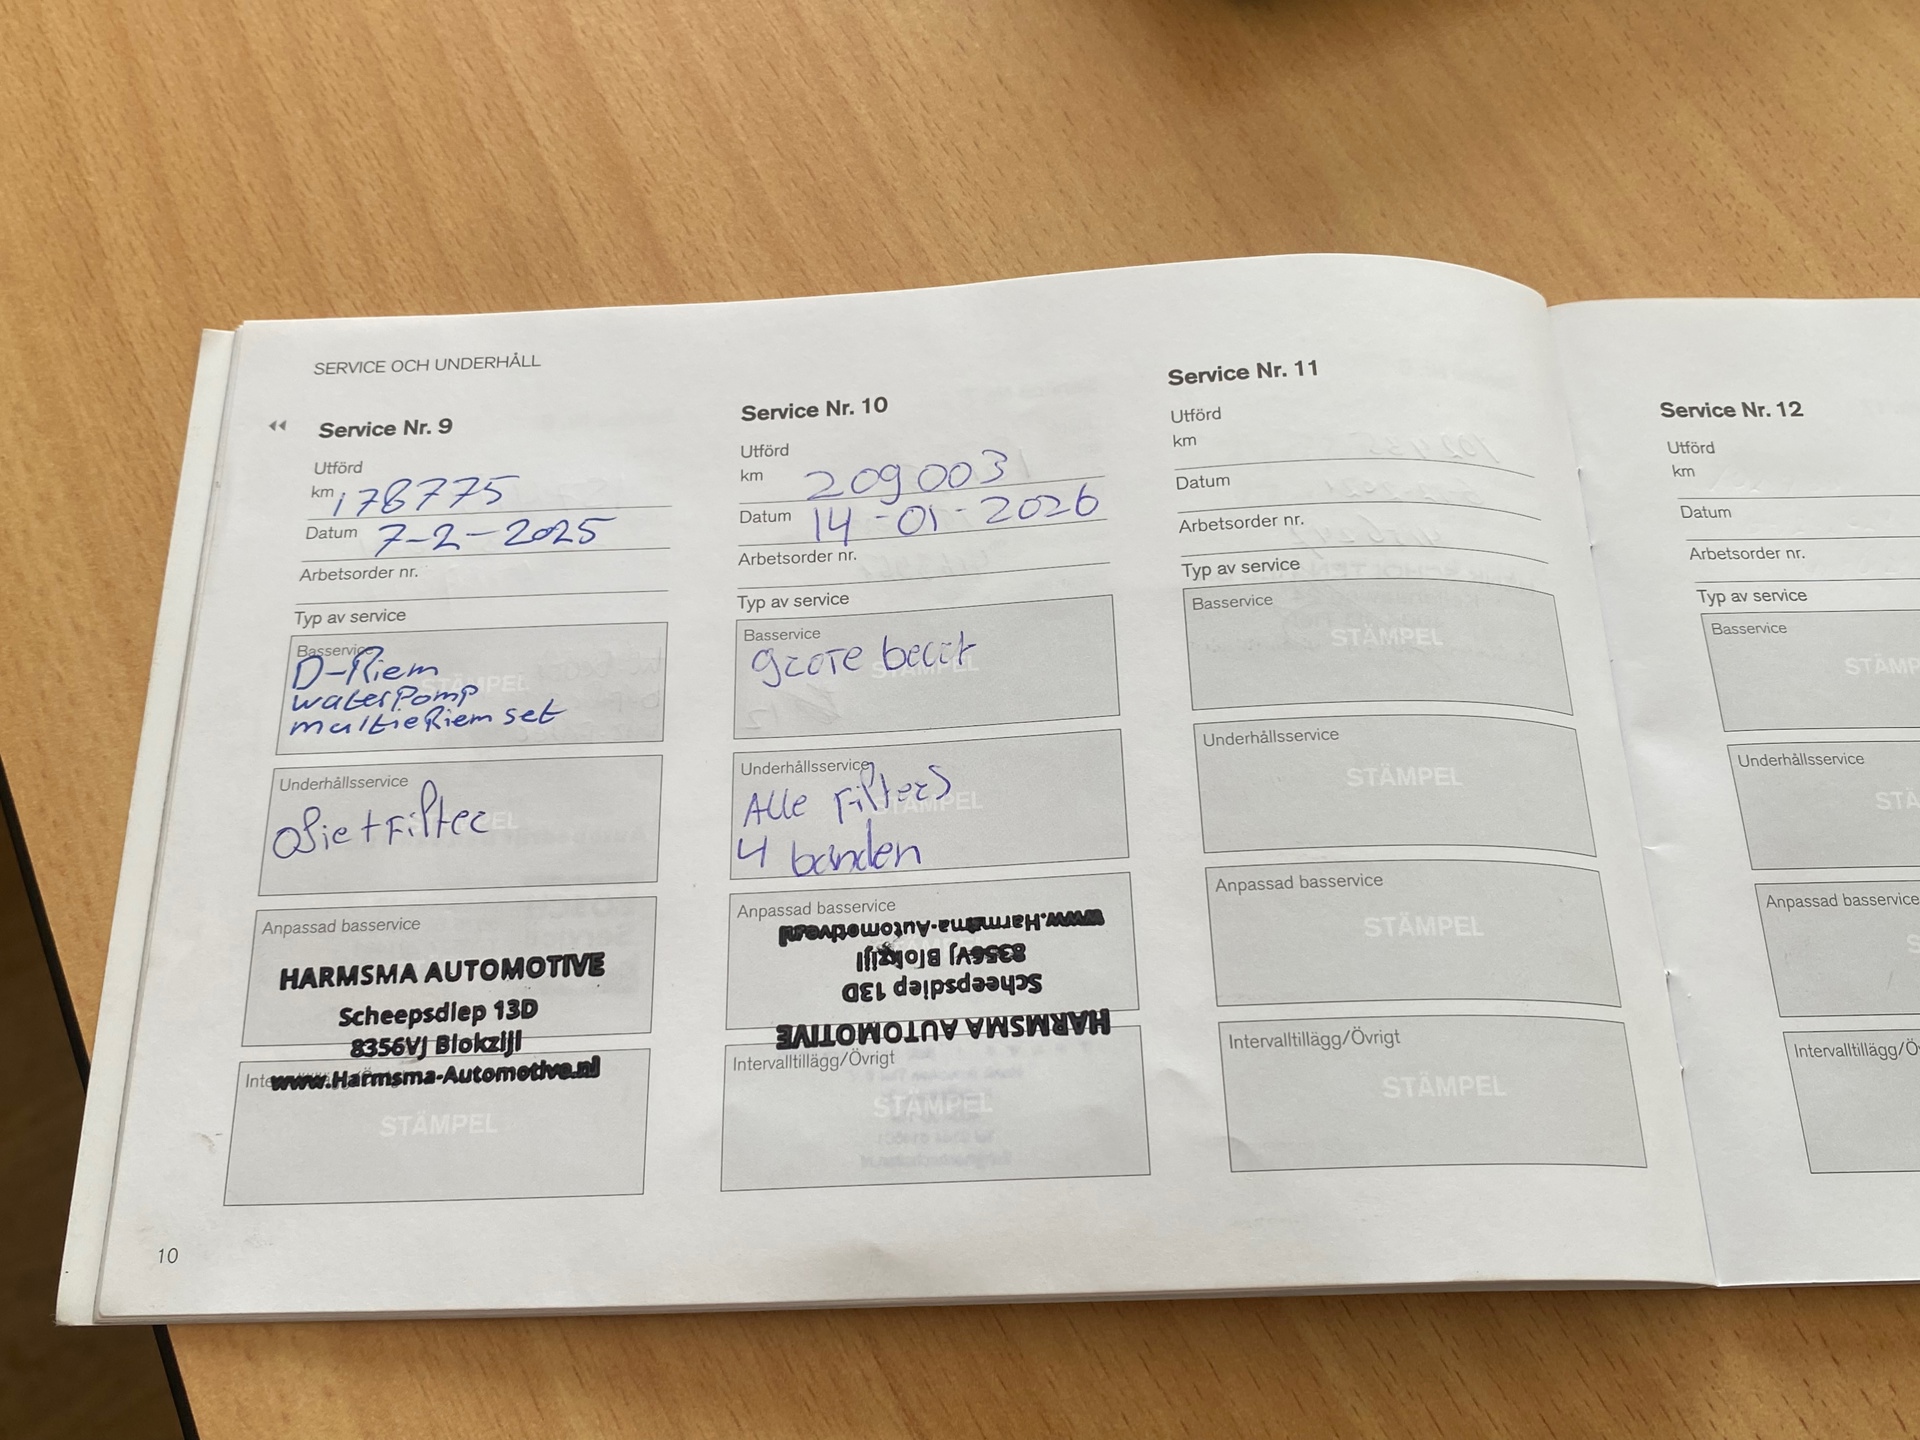 SERVICE OCH UNDERHÅLL
Service Nr. 9
Utförd
km 178775
Datum 7-2-2025
Arbetsorder nr.
Typ av service
Basservice
D-Riem
waterPomp
multieRiem set
Underhållsservice
Olie + Filter
Anpassad basservice
HARMSMA AUTOMOTIVE
Scheepsdiep 13D
8356VJ Blokzijl
www.Harmsma-Automotive.nl
STÄMPEL
Service Nr. 10
Utförd
km 209003
Datum 14-01-2026
Arbetsorder nr.
Typ av service
Basservice
grote beurt
Underhållsservice
Alle Filters
4 banden
Anpassad basservice
HARMSMA AUTOMOTIVE
Scheepsdiep 13D
8356VJ Blokzijl
www.Harmsma-Automotive.nl
Intervalltillägg/Övrigt
STÄMPEL
Service Nr. 11
Utförd
km
Datum
Arbetsorder nr.
Typ av service
Basservice
STÄMPEL
Underhållsservice
STÄMPEL
Anpassad basservice
STÄMPEL
Intervalltillägg/Övrigt
STÄMPEL
Service Nr. 12
Utförd
km
Datum
Arbetsorder nr.
Typ av service
Basservice
Underhållsservice
Anpassad basservice
10